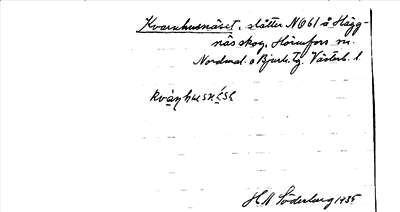 Kvarnhusnäset, slåtter N061 å Hägg-
näs skog, Hörnefors sn.
Nordmal. o Bjurh. tg. Västerb. l.
kvànhusnése
H A Söderberg 1935